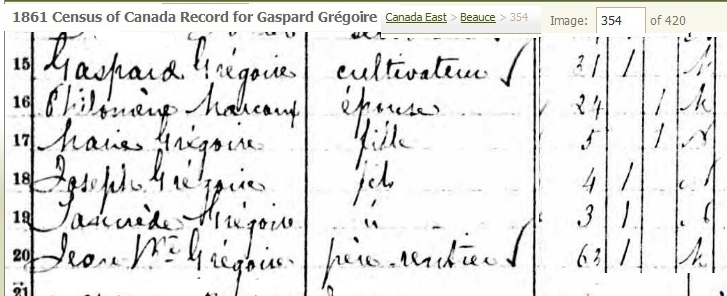 1861 Census of Canada Record for Gaspard Grégoire Canada East > Beauce > 354 Image: 354 of 420
15 Gaspard Grégoire cultivateur 31 1
16 Philomène Marcoux épouse 24 1
17 Marie Grégoire fille 5 1
18 Joseph Grégoire fils 4 1
19 Tancrède Grégoire 3 1
20 Jean Grégoire père rentier 63 1
21